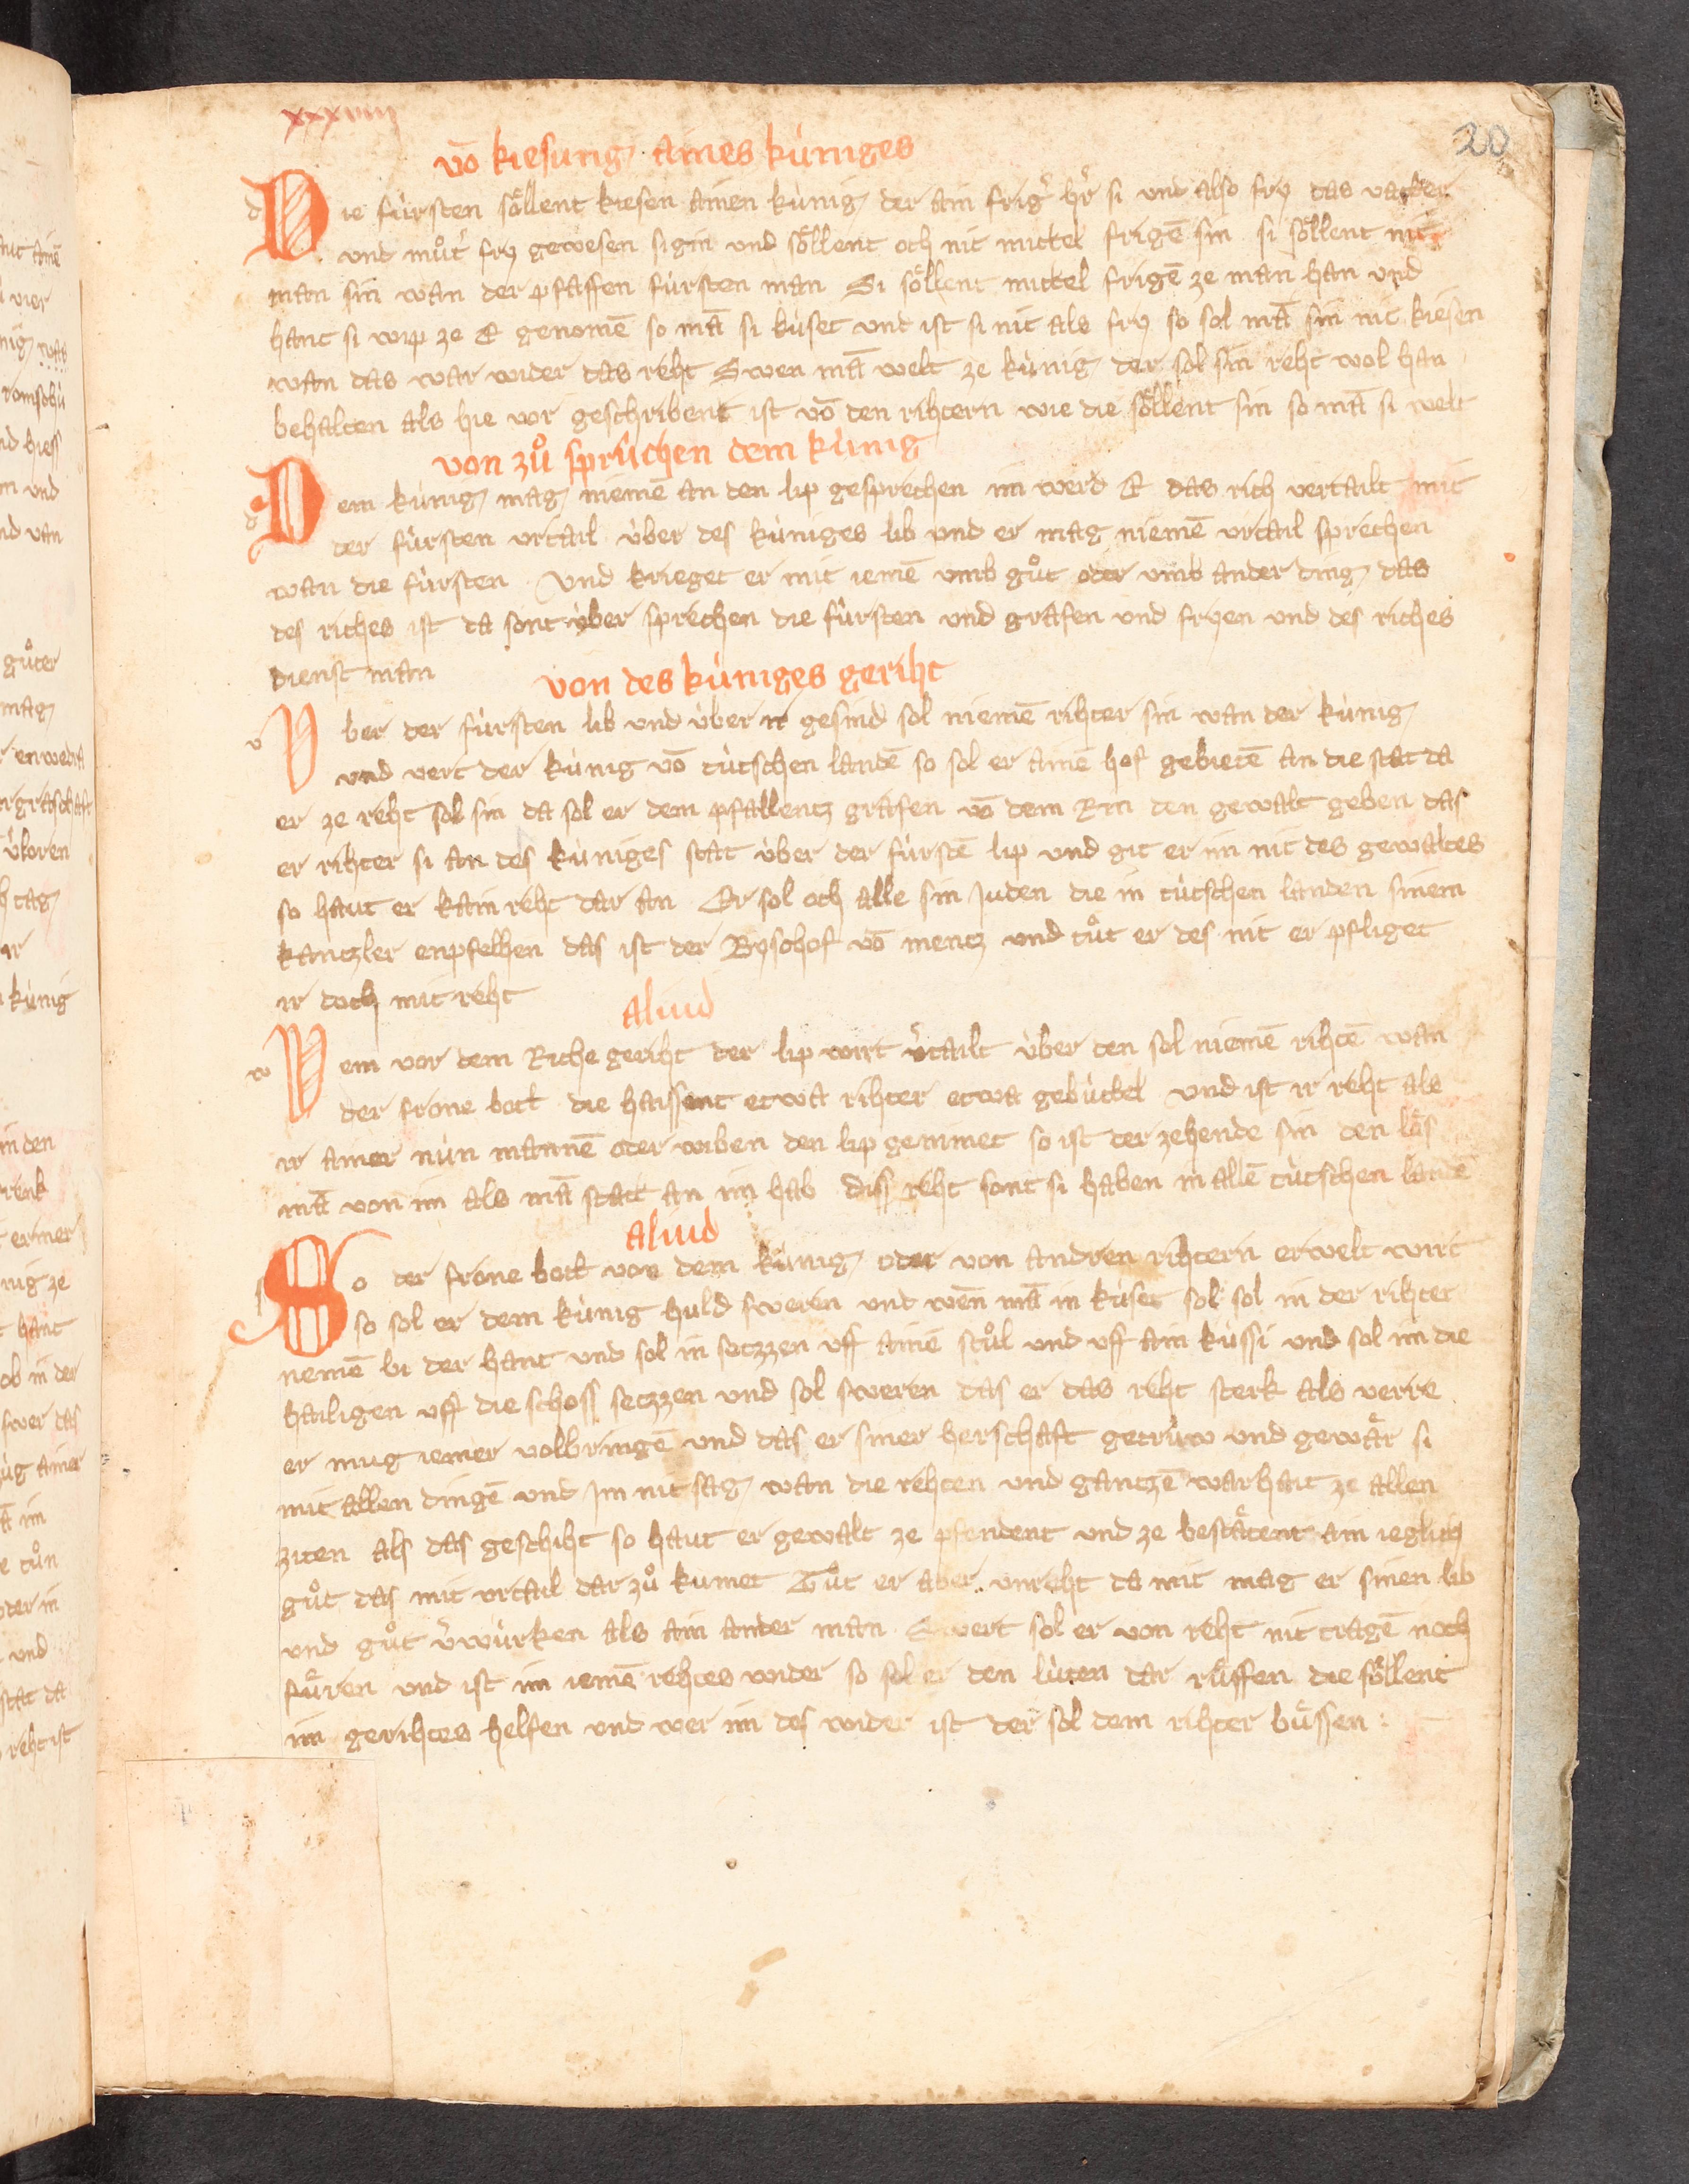 xxxviiii
20
võ kiesung aines kúniges
Die fúrsten so̎llent kiesen ainen kúnig der ain frig̾ hr̾ si und also fry das vatter
und mu̍t̾ fry gewesen sigin und so̎llent och nit mittel frigē sin si so̎llent nit
man sin wan der pfaffen fúrsten man Si so̎llent mittel frigē ze man han und
hant si wip ze E genomē so mā si kúset und ist si nit als fry so sol mā sin nit kiesen
wan das war wider das reht Swen mā welt ze kúnig der sol sin reht wol han
behalten als hie vor geschribent ist võ den rihtern wie die so̎llent sin so mā si welt
von zuͦ sprúchen dem kúnig
Dem kúnig mag niemē an den lip gesprechen im werd E das rich vertailt mit
der fúrsten urtail úber des kúniges lib und er mag niemē urtail sprechen
wan die fúrsten Und krieget er mit iemē umb guͦt oder umb ander ding das
des riches ist da sont úber sprechen die fúrsten und grafen und fryen und des riches
dienst man
von des kúniges geriht
Vber der fúrsten lib und úber ir gesind sol niemē rihter sin wan der kúnig
und vert der kúnig võ tútschen landē so sol er ainē hof gebietē an die stat da
er ze reht sol sin da sol er dem pfallentz grafen võ dem Rin den gewalt geben das
er rihter si an des kúniges stat úber der fúrstē lip und git er im nit des gewaltes
so haut er kain reht dar an Er sol och alle sin Juden die in tútschen landen sinem
kantzler enpfelhen das ist der Byschof võ mentz und tuͦt er des nit er pfliget
ir doch mit reht
aliud
Wem vor dem Riche geriht der lip wirt v̾tailt úber den sol niemē rihtē wan
der frone bott die haissent etwa rihter etwa gebúttel und ist ir reht als
ir ainer nún mannē oder wiben den lip genimet so ist der zehende sin den lo̎s
mā von im als mā statt an im hab diss reht sont si haben in allē tútschen landē
aliud
So der frone bott von dem kúnig oder von andren rihtern erwelt wirt
so sol er dem kúnig huld sweren und wen̄ mā in kúset sol sol in der rihter
nemē bi der hant und sol in setzzen uff ainē stuͦl und uff ain kússi und sol im die
hailigen uff die schoss setzzen und sol sweren das er das reht sterk als verre
er mug iemer volbringē und das er siner herschaft getrúw und gewa̎r si
mit allen dingē und Im nit sag wan die rehten und gantzē warhait ze allen
ziten als das geschiht so haut er gewalt ze pfendent und ze besta̎tent ain ieglich
guͦt das mit urtail dar zuͦ kumet Tuͦt er aber unreht da mit mag er sinen lib
und guͦt v̾wúrken als ain ander man Swert sol er von reht nit tragē noch
fu̎ren und ist im iemē rehtes wider so sol er den lúten dar ru̎ffen die so̎llent
im gerihtes helfen und wer im des wider ist der sol dem rihter bu̎ssen :